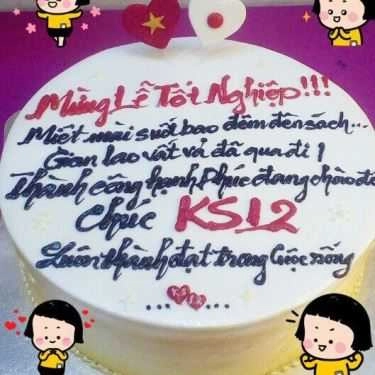 Mừng Lễ Tốt Nghiệp!!!
Miệt mài suốt bao đêm đèn sách...
Gian lao vất vả đã qua đi!
Thành công hạnh phúc đang chào đó
Chúc KS12
Luôn thành đạt trong cuộc sống